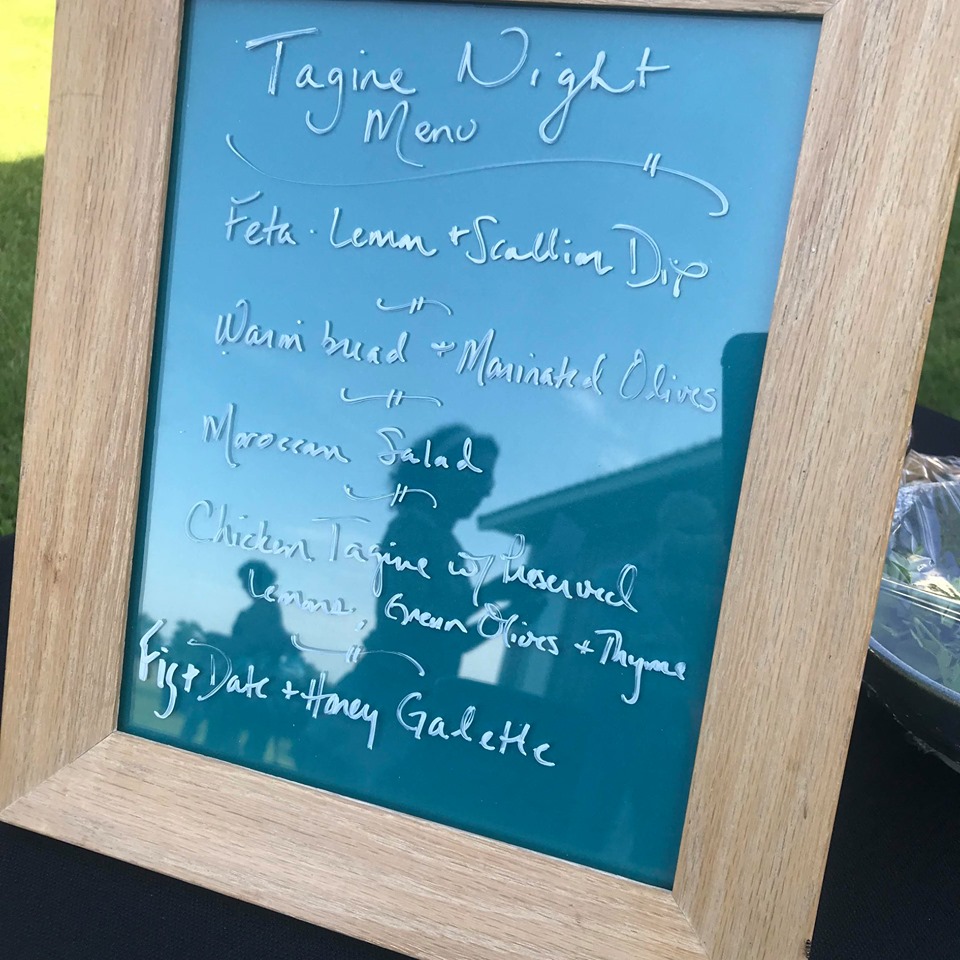 Tagine Night
Menu
Feta · Lemon + Scallion Dip
Warm bread + Marinated Olives
Moroccan Salad
Chicken Tagine w/ Preserved
Lemons, Green Olives + Thyme
Fig + Date + Honey Galette